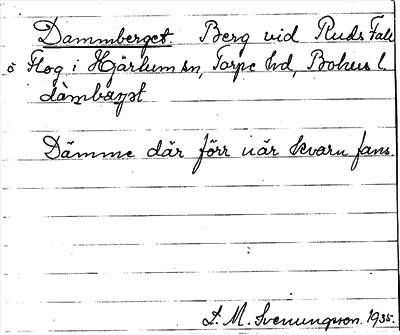 Dammberget. Berg vid Ruds Fall
o Flog i Hjärtum sn, Torpe hd, Bohus l.
dàmbar̥jət
Dämme där förr när kvarn fans.
S. M. Svenungsson. 1935.